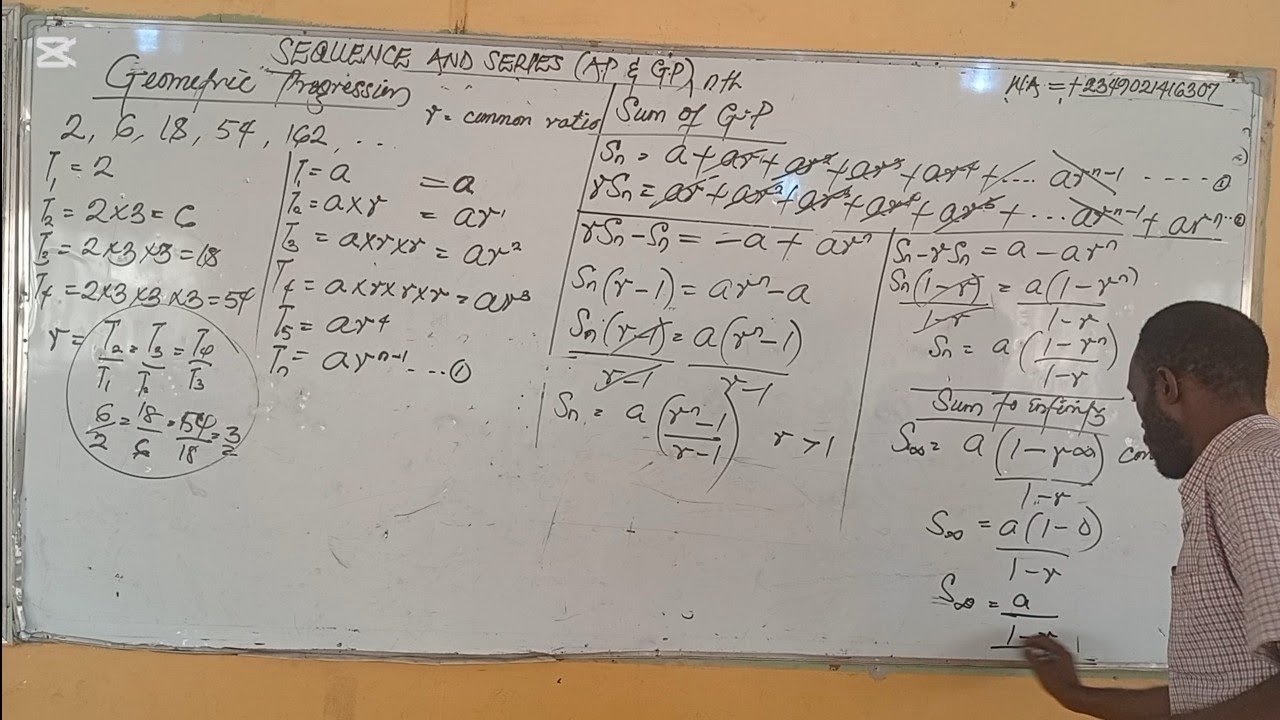 SEQUENCE AND SERIES (AP & GP) nth
Geometric Progression
r = common ratio
2, 6, 18, 54, 162, ...
T₁ = 2
T₂ = 2×3 = 6
T₃ = 2×3×3 = 18
T₄ = 2×3×3×3 = 54
r = T₂/T₁ = T₃/T₂ = T₄/T₃
6/2 = 18/6 = 54/18 = 3/2
T₁ = a = a
T₂ = a×r = ar¹
T₃ = a×r×r = ar²
T₄ = a×r×r×r = ar³
T₅ = ar⁴
Tₙ = arⁿ⁻¹ ... ①
Sum of G.P
Sₙ = a + ar + ar² + ar³ + ar⁴ + .... arⁿ⁻¹ ---- ①
rSₙ = ar + ar² + ar³ + ar⁴ + ar⁵ + ... arⁿ⁻¹ + arⁿ ..
rSₙ - Sₙ = -a + arⁿ
Sₙ(r-1) = arⁿ - a
Sₙ(r-1)/r-1 = a(rⁿ-1)/r-1
Sₙ = a(rⁿ-1/r-1) r > 1
Sₙ - rSₙ = a - arⁿ
Sₙ(1-r)/1-r = a(1-rⁿ)/1-r
Sₙ = a(1-rⁿ/1-r)
Sum to infinity
S∞ = a(1-r∞)/1-r
S∞ = a(1-0)/1-r
S∞ = a/1-r
+2349021416307